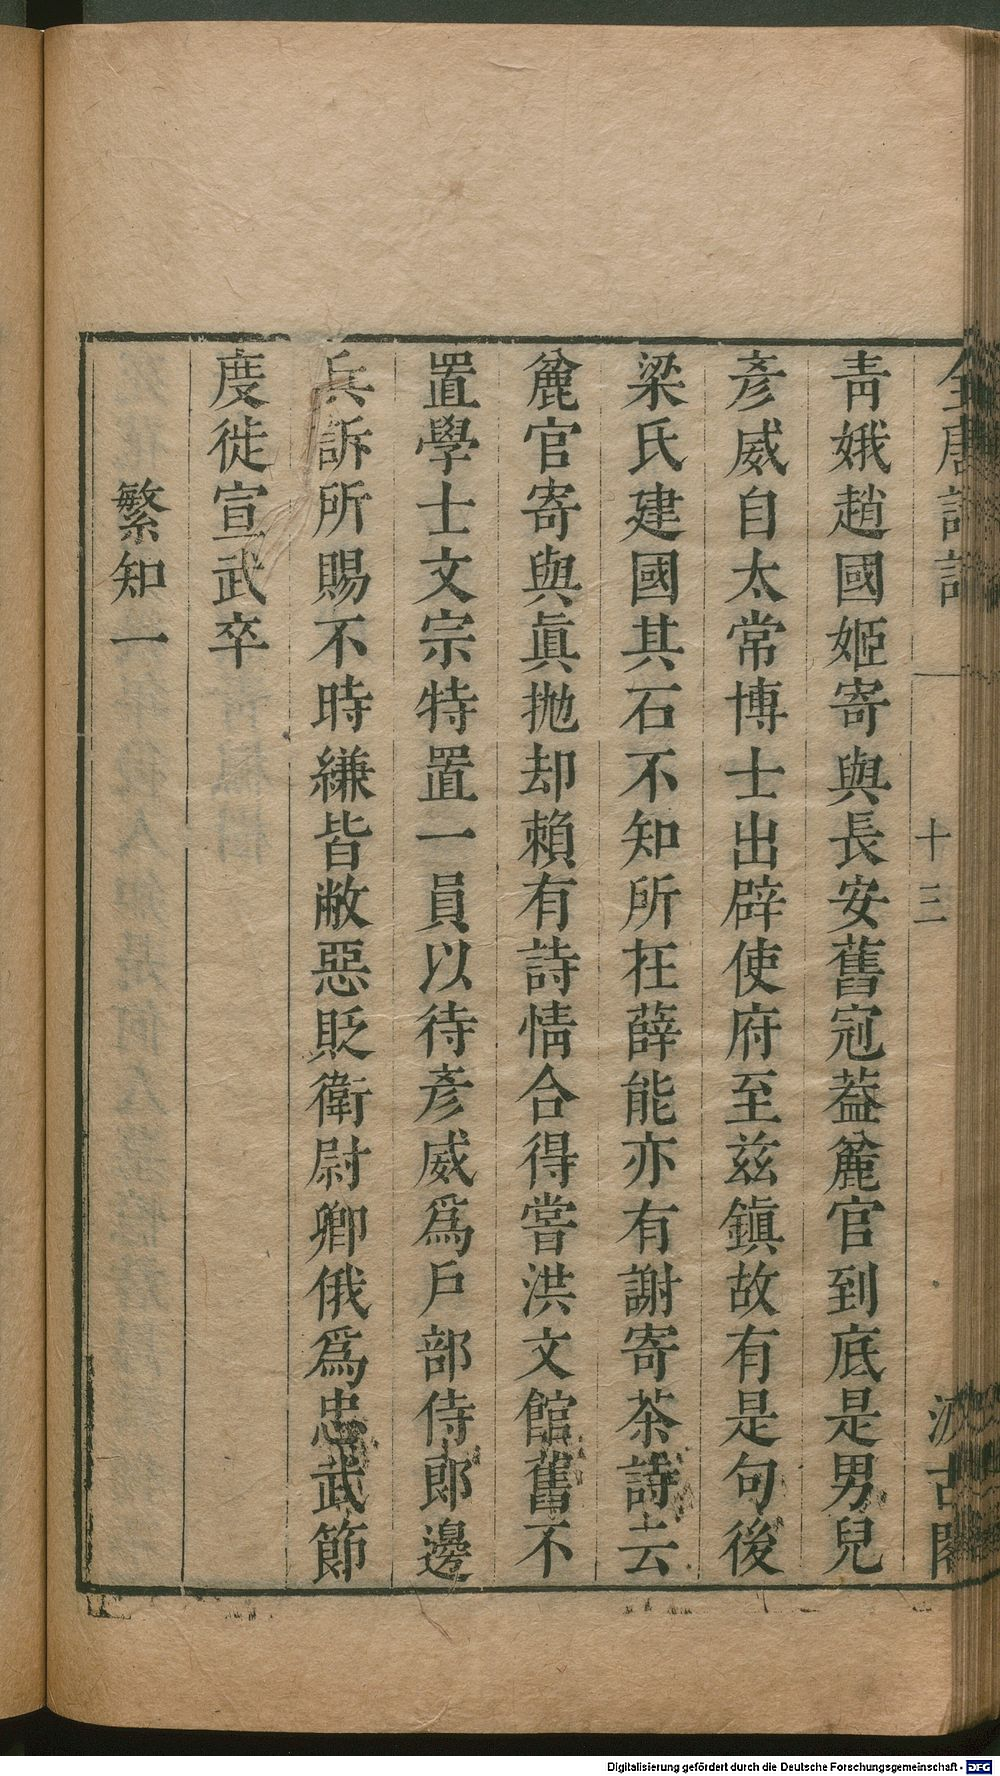 全唐詩話 十三 汲古閣
靑娥趙國姬寄與長安舊冠葢麄官到底是男兒
彥威自太常博士出辟使府至兹鎭故有是句後
梁氏建國其石不知所在薛能亦有謝寄茶詩云
麄官寄與眞抛却賴有詩情合得嘗洪文館舊不
置學士文宗特置一員以待彥威爲戶部侍郎邊
兵訴所賜不時縑皆敝惡貶衛尉卿俄爲忠武節
度徙宣武卒
繁知一
Digitalisierung gefördert durch die Deutsche Forschungsgemeinschaft - DFG